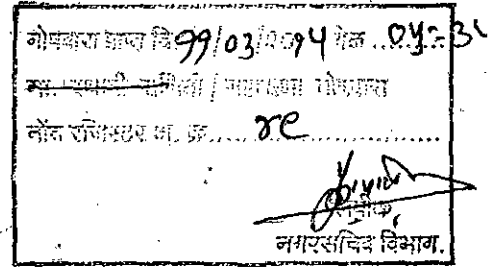 गोषवारा प्राप्त दि. ११/०३/२०१५ वेळ ..... ०५=३५
मा. स्थायी समिती / महासभा गोषवारा
नोंद रजिस्टर अ. क्र. ..... ४८ .....
नगरसचिव विभाग.